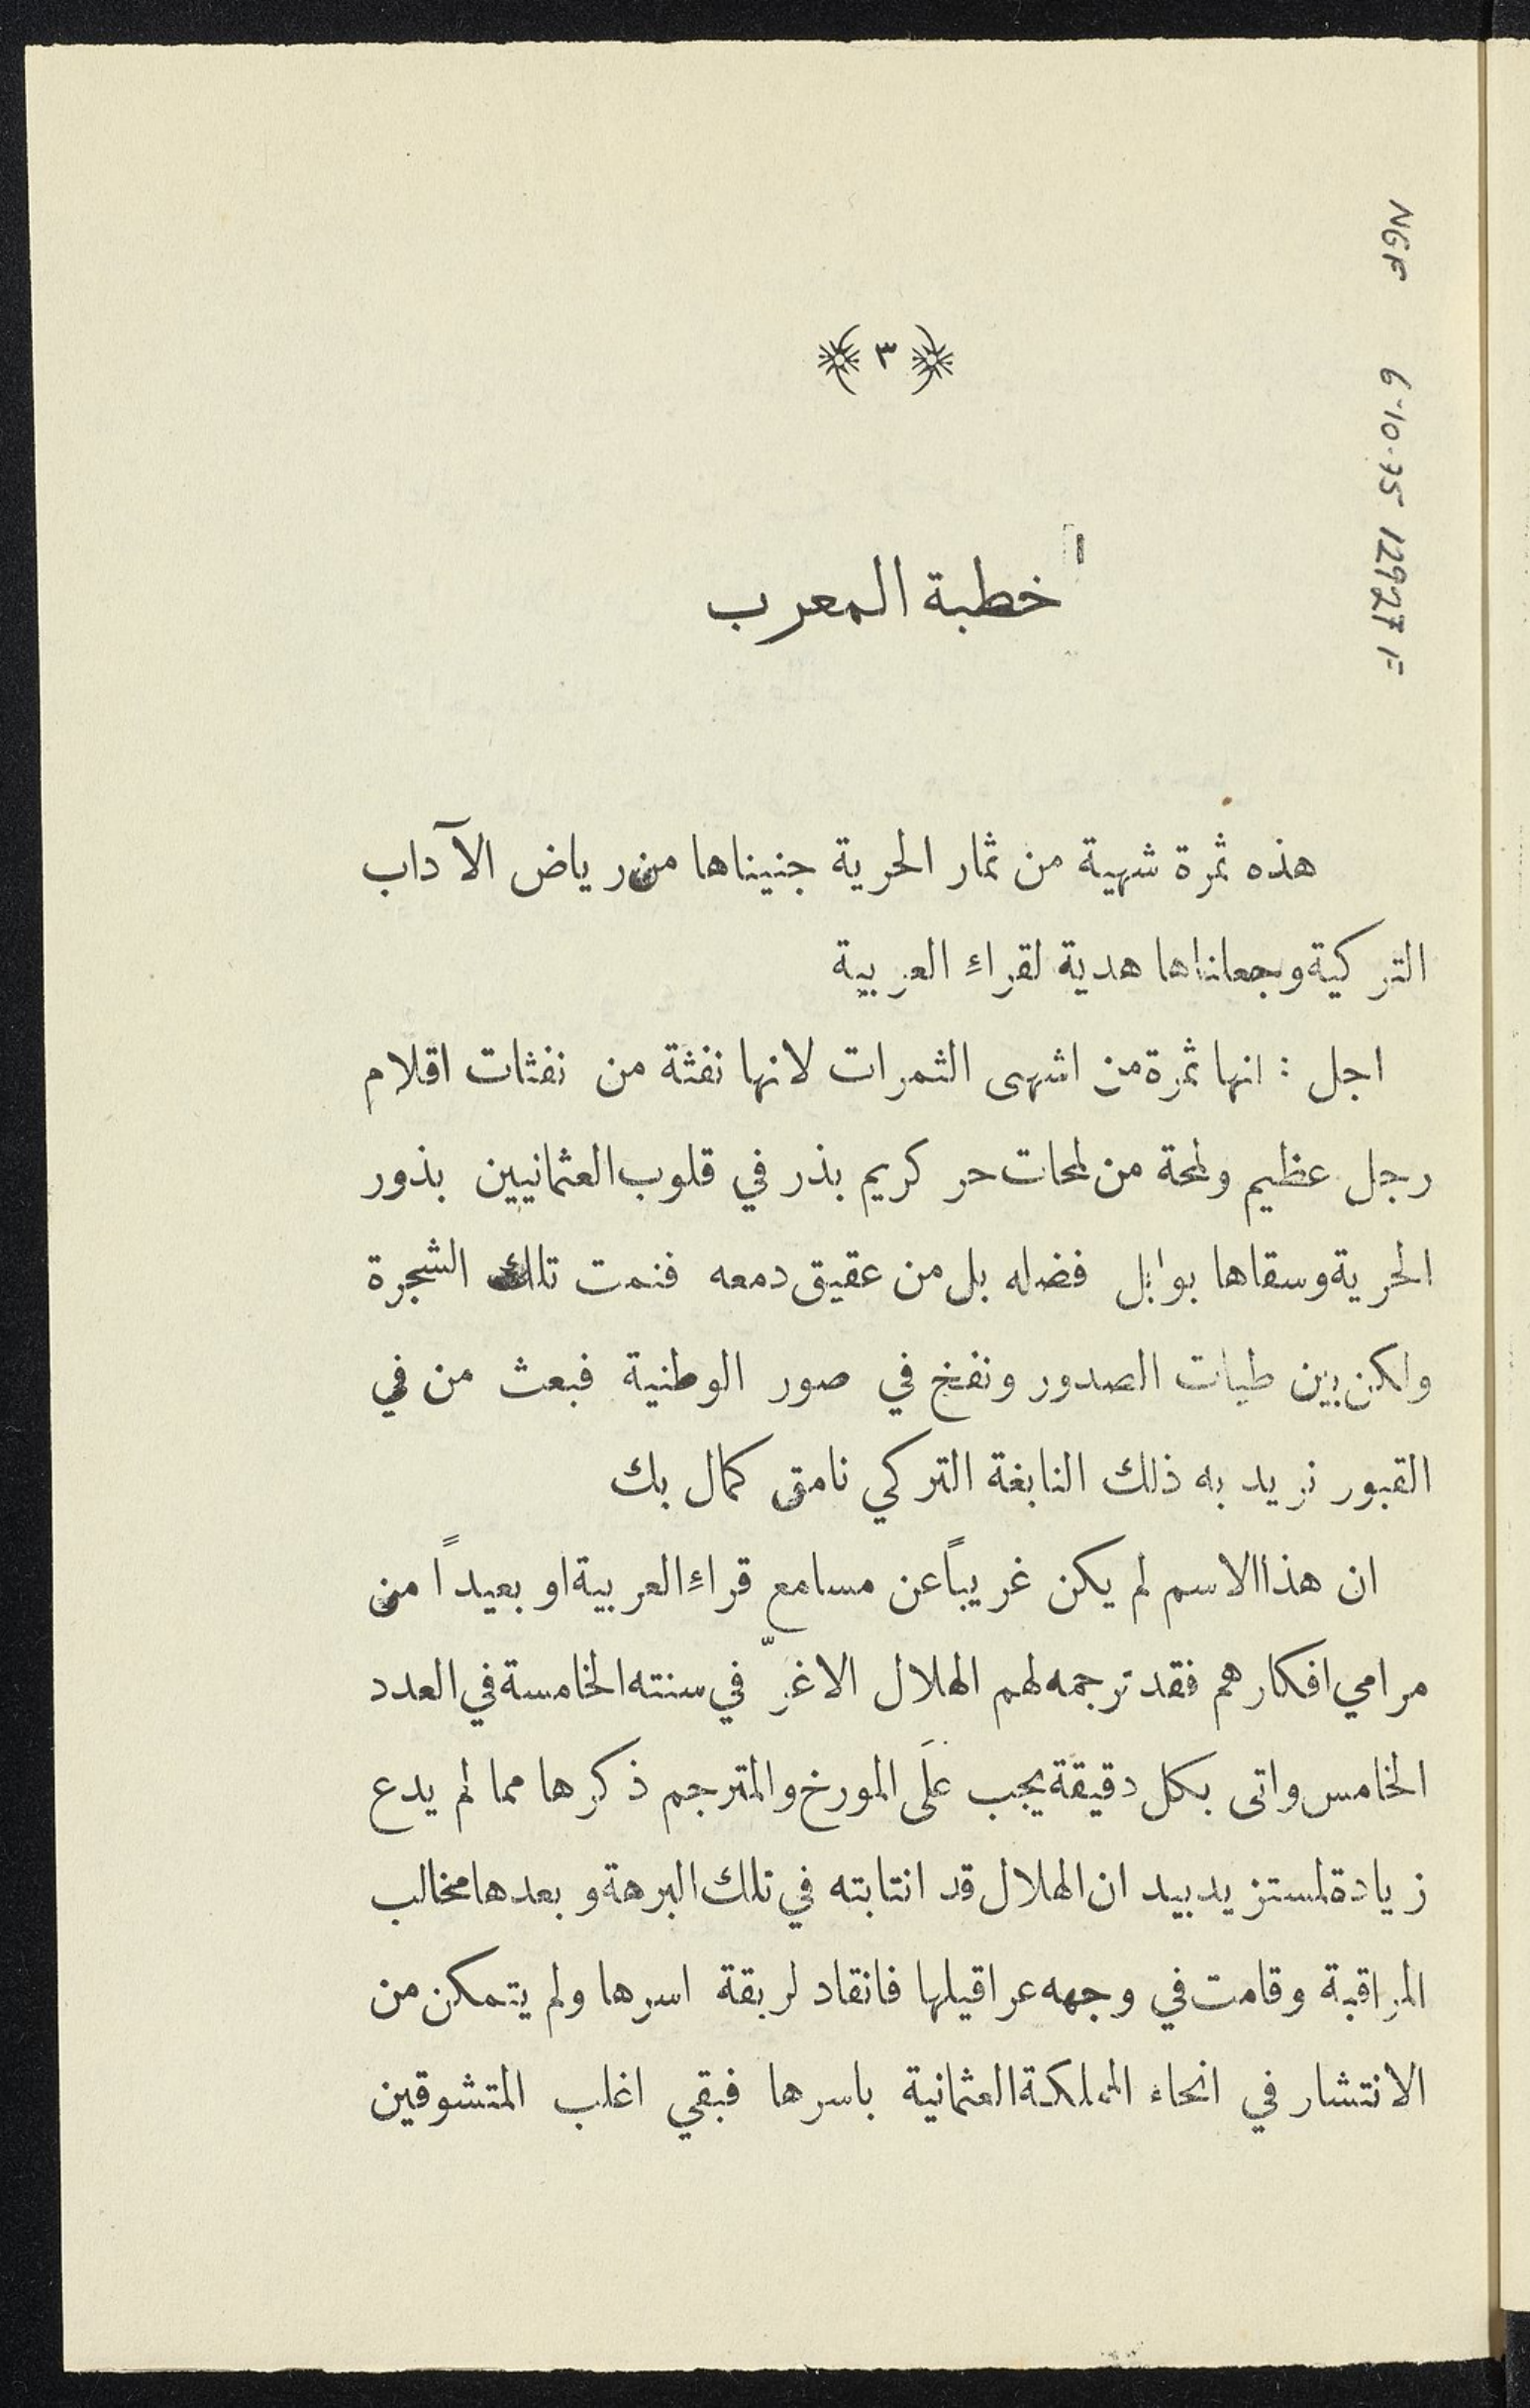 ﴿ ٣ ﴾
خطبة المعرب
هذه ثمرة شهية من ثمار الحرية جنيناها من رياض الآداب
التركية وجعلناها هدية لقراء العربية
اجل : انها ثمرة من اشهى الثمرات لانها نفثة من نفثات اقلام
رجل عظيم ولمحة من لمحات حر كريم بذر في قلوب العثمانيين بذور
الحرية وسقاها بوابل فضله بل من عقيق دمعه فنمت تلك الشجرة
ولكن بين طيات الصدور ونفخ في صور الوطنية فبعث من في
القبور نريد به ذلك النابغة التركي نامق كمال بك
ان هذا الاسم لم يكن غريباً عن مسامع قراء العربية او بعيداً من
مرامي افكارهم فقد ترجمه لهم الهلال الاغرّ في سنته الخامسة في العدد
الخامس واتى بكل دقيقة يجب علَى المورخ والمترجم ذكرها مما لم يدع
زيادة لمستزيد بيد ان الهلال قد انتابته في تلك البرهة و بعدها مخالب
المراقبة وقامت في وجهه عراقيلها فانقاد لربقة اسرها ولم يتمكن من
الانتشار في انحاء المملكة العثمانية باسرها فبقي اغلب المتشوقين
NGF 6-10-75 12927 F